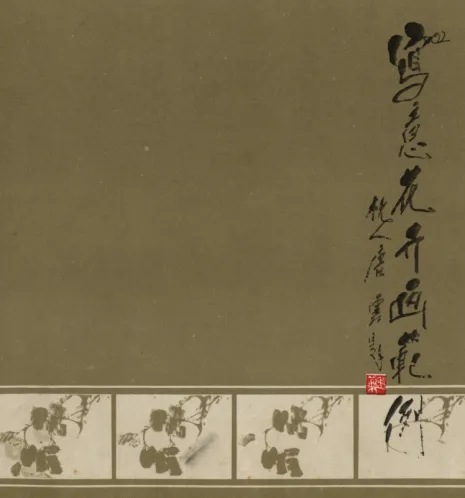 寫意花卉画範例
杭人唐雲題